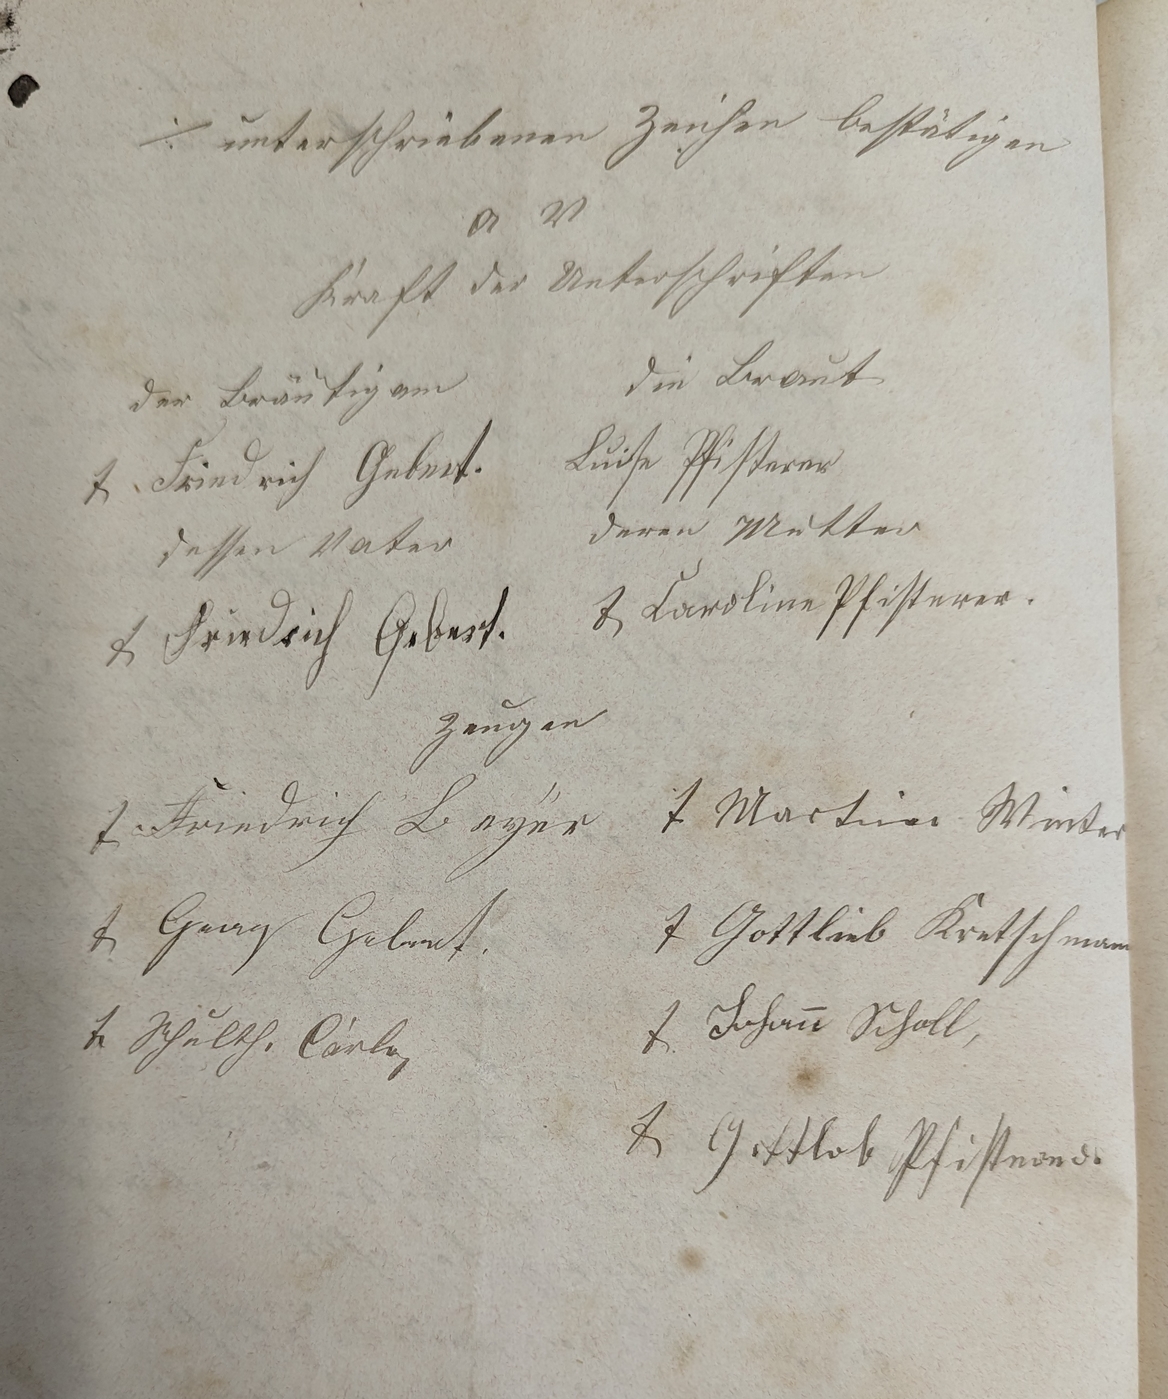 ·/· unterschriebenen Zeichen bestätigen
a V
Kraft der Unterschriften
der Bräutigam
die Braut
† Friedrich Gebert.
Luise Pfisterer
dessen Vater
deren Mutter
† Friedrich Gebert.
† Caroline Pfisterer.
Zeugen
† Friedrich Beyer
† Martin Winter
† Georg Gebert.
† Gottlieb Kretschmann
† Schulth.
† Johann Scholl,
† Gottlob Pfisterer.